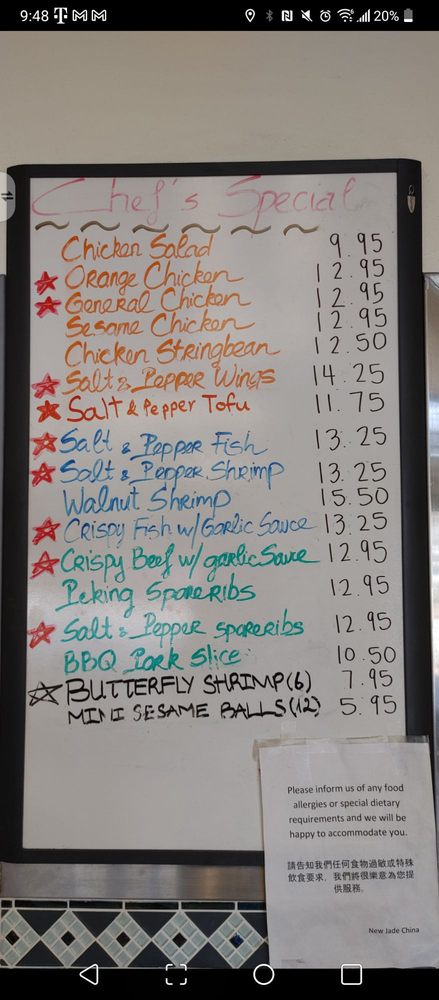 9:48
20%
Chef's Special
Chicken Salad 9.95
Orange Chicken 12.95
General Chicken 12.95
Sesame Chicken 12.95
Chicken Stringbean 12.50
Salt & Pepper Wings 14.25
Salt & Pepper Tofu 11.75
Salt & Pepper Fish 13.25
Salt & Pepper Shrimp 13.25
Walnut Shrimp 15.50
Crispy Fish w/ Garlic Sauce 13.25
Crispy Beef w/ garlic Sauce 12.95
Peking Spareribs 12.95
Salt & Pepper spareribs 12.95
BBQ Pork Slice 10.50
BUTTERFLY SHRIMP (6) 7.95
MINI SESAME BALLS (12) 5.95
Please inform us of any food
allergies or special dietary
requirements and we will be
happy to accommodate you.
請告知我們任何食物過敏或特殊
飲食要求，我們將很樂意為您提
供服務。
New Jade China